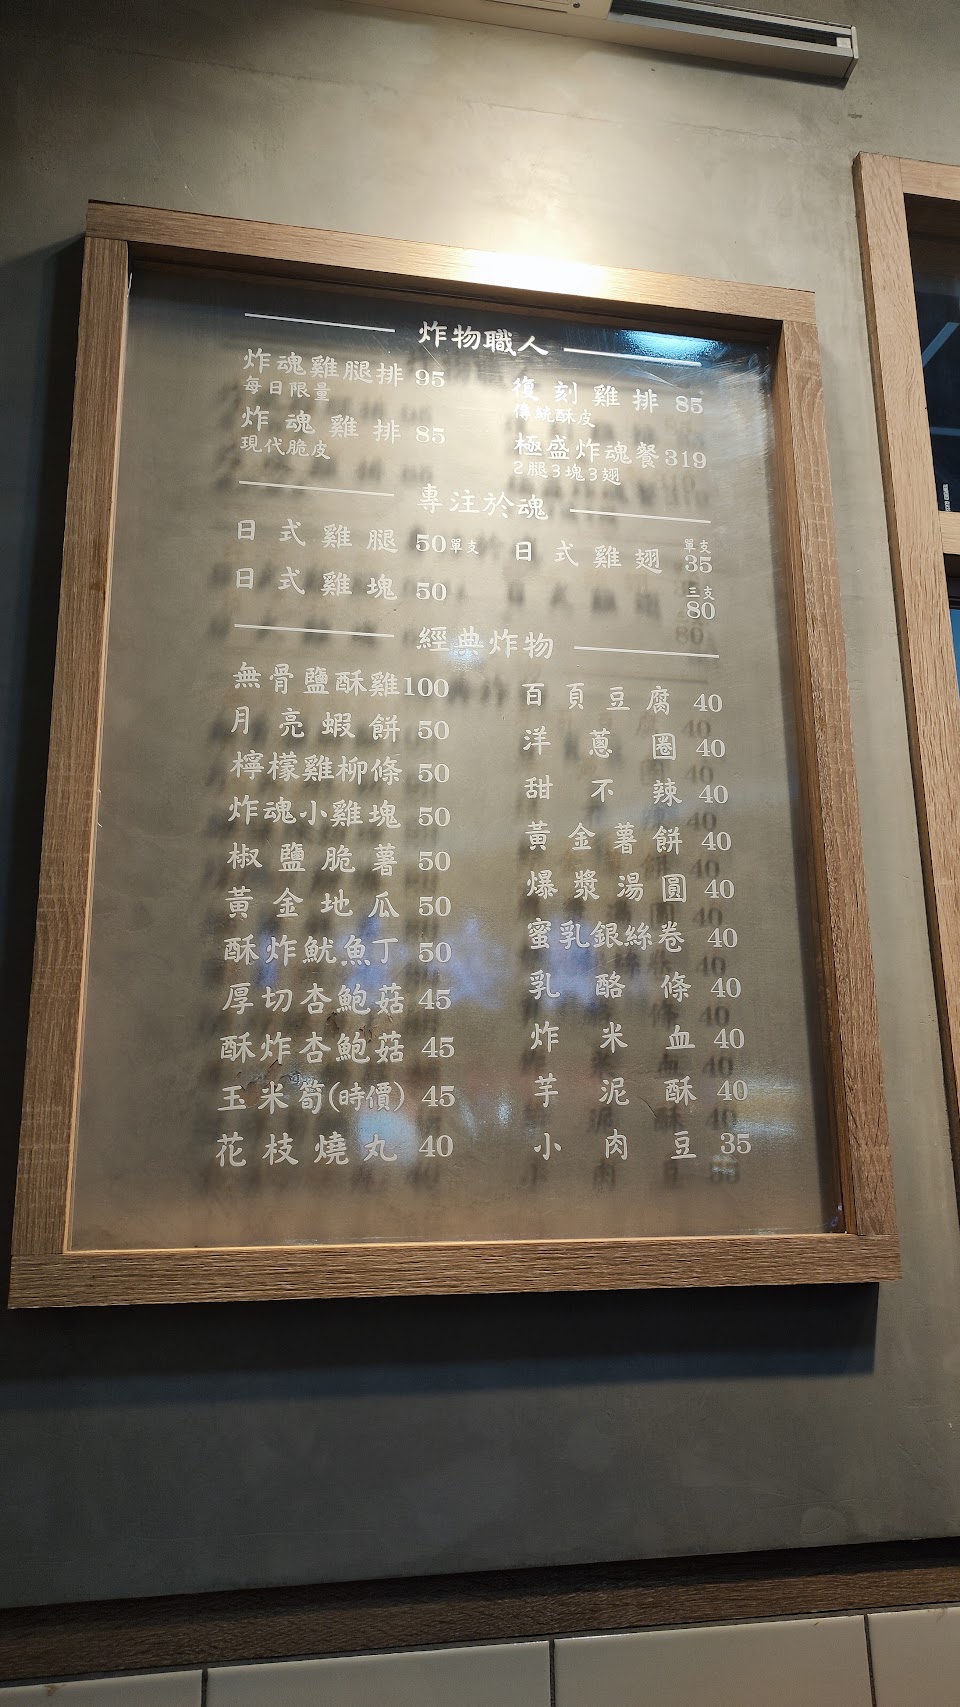 炸物職人
炸魂雞腿排 95
每日限量
炸魂雞排 85
現代脆皮
復刻雞排 85
傳統酥皮
極盛炸魂餐 319
2腿3塊3翅
專注於魂
日式雞腿 50單支
日式雞塊 50
日式雞翅 單支 35
三支 80
經典炸物
無骨鹽酥雞100
月亮蝦餅 50
檸檬雞柳條 50
炸魂小雞塊 50
椒鹽脆薯 50
黃金地瓜 50
酥炸魷魚丁 50
厚切杏鮑菇 45
酥炸杏鮑菇 45
玉米筍(時價) 45
花枝燒丸 40
百頁豆腐 40
洋蔥圈 40
甜不辣 40
黃金薯餅 40
爆漿湯圓 40
蜜乳銀絲卷 40
乳酪條 40
炸米血 40
芋泥酥 40
小肉豆 35